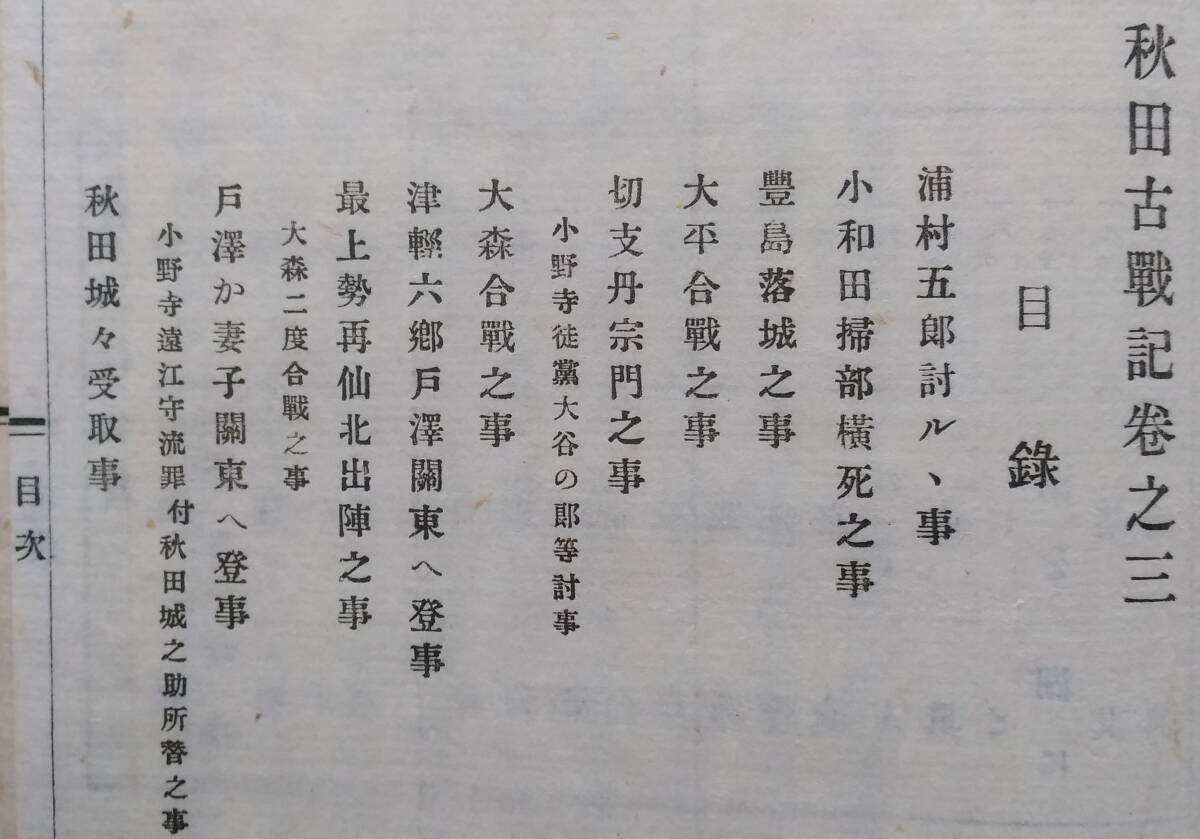 秋田古戰記卷之三
目錄
浦村五郎討ル丶事
小和田掃部橫死之事
豐島落城之事
大平合戰之事
切支丹宗門之事
小野寺徒黨大谷の郎等討事
大森合戰之事
津輕六鄉戸澤關東へ登事
最上勢再仙北出陣之事
大森二度合戰之事
戸澤か妻子關東へ登事
小野寺遠江守流罪付秋田城之助所替之事
秋田城々受取事
目次